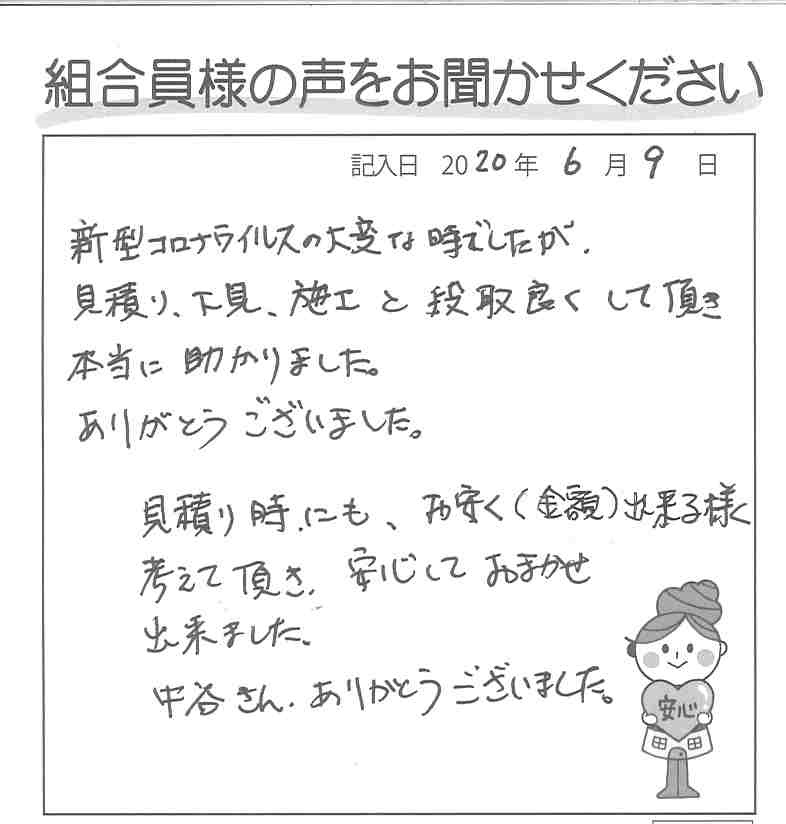 組合員様の声をお聞かせください
記入日 2020年 6月9日
新型コロナウイルスの大変な時でしたが、
見積り、下見、施工と段取良くして頂き
本当に助かりました。
ありがとうございました。
見積り時にも、お安く(金額)出来る様く
考えて頂き、安心しておまかせ
出来ました。
中谷さん、ありがとうございました。
安心